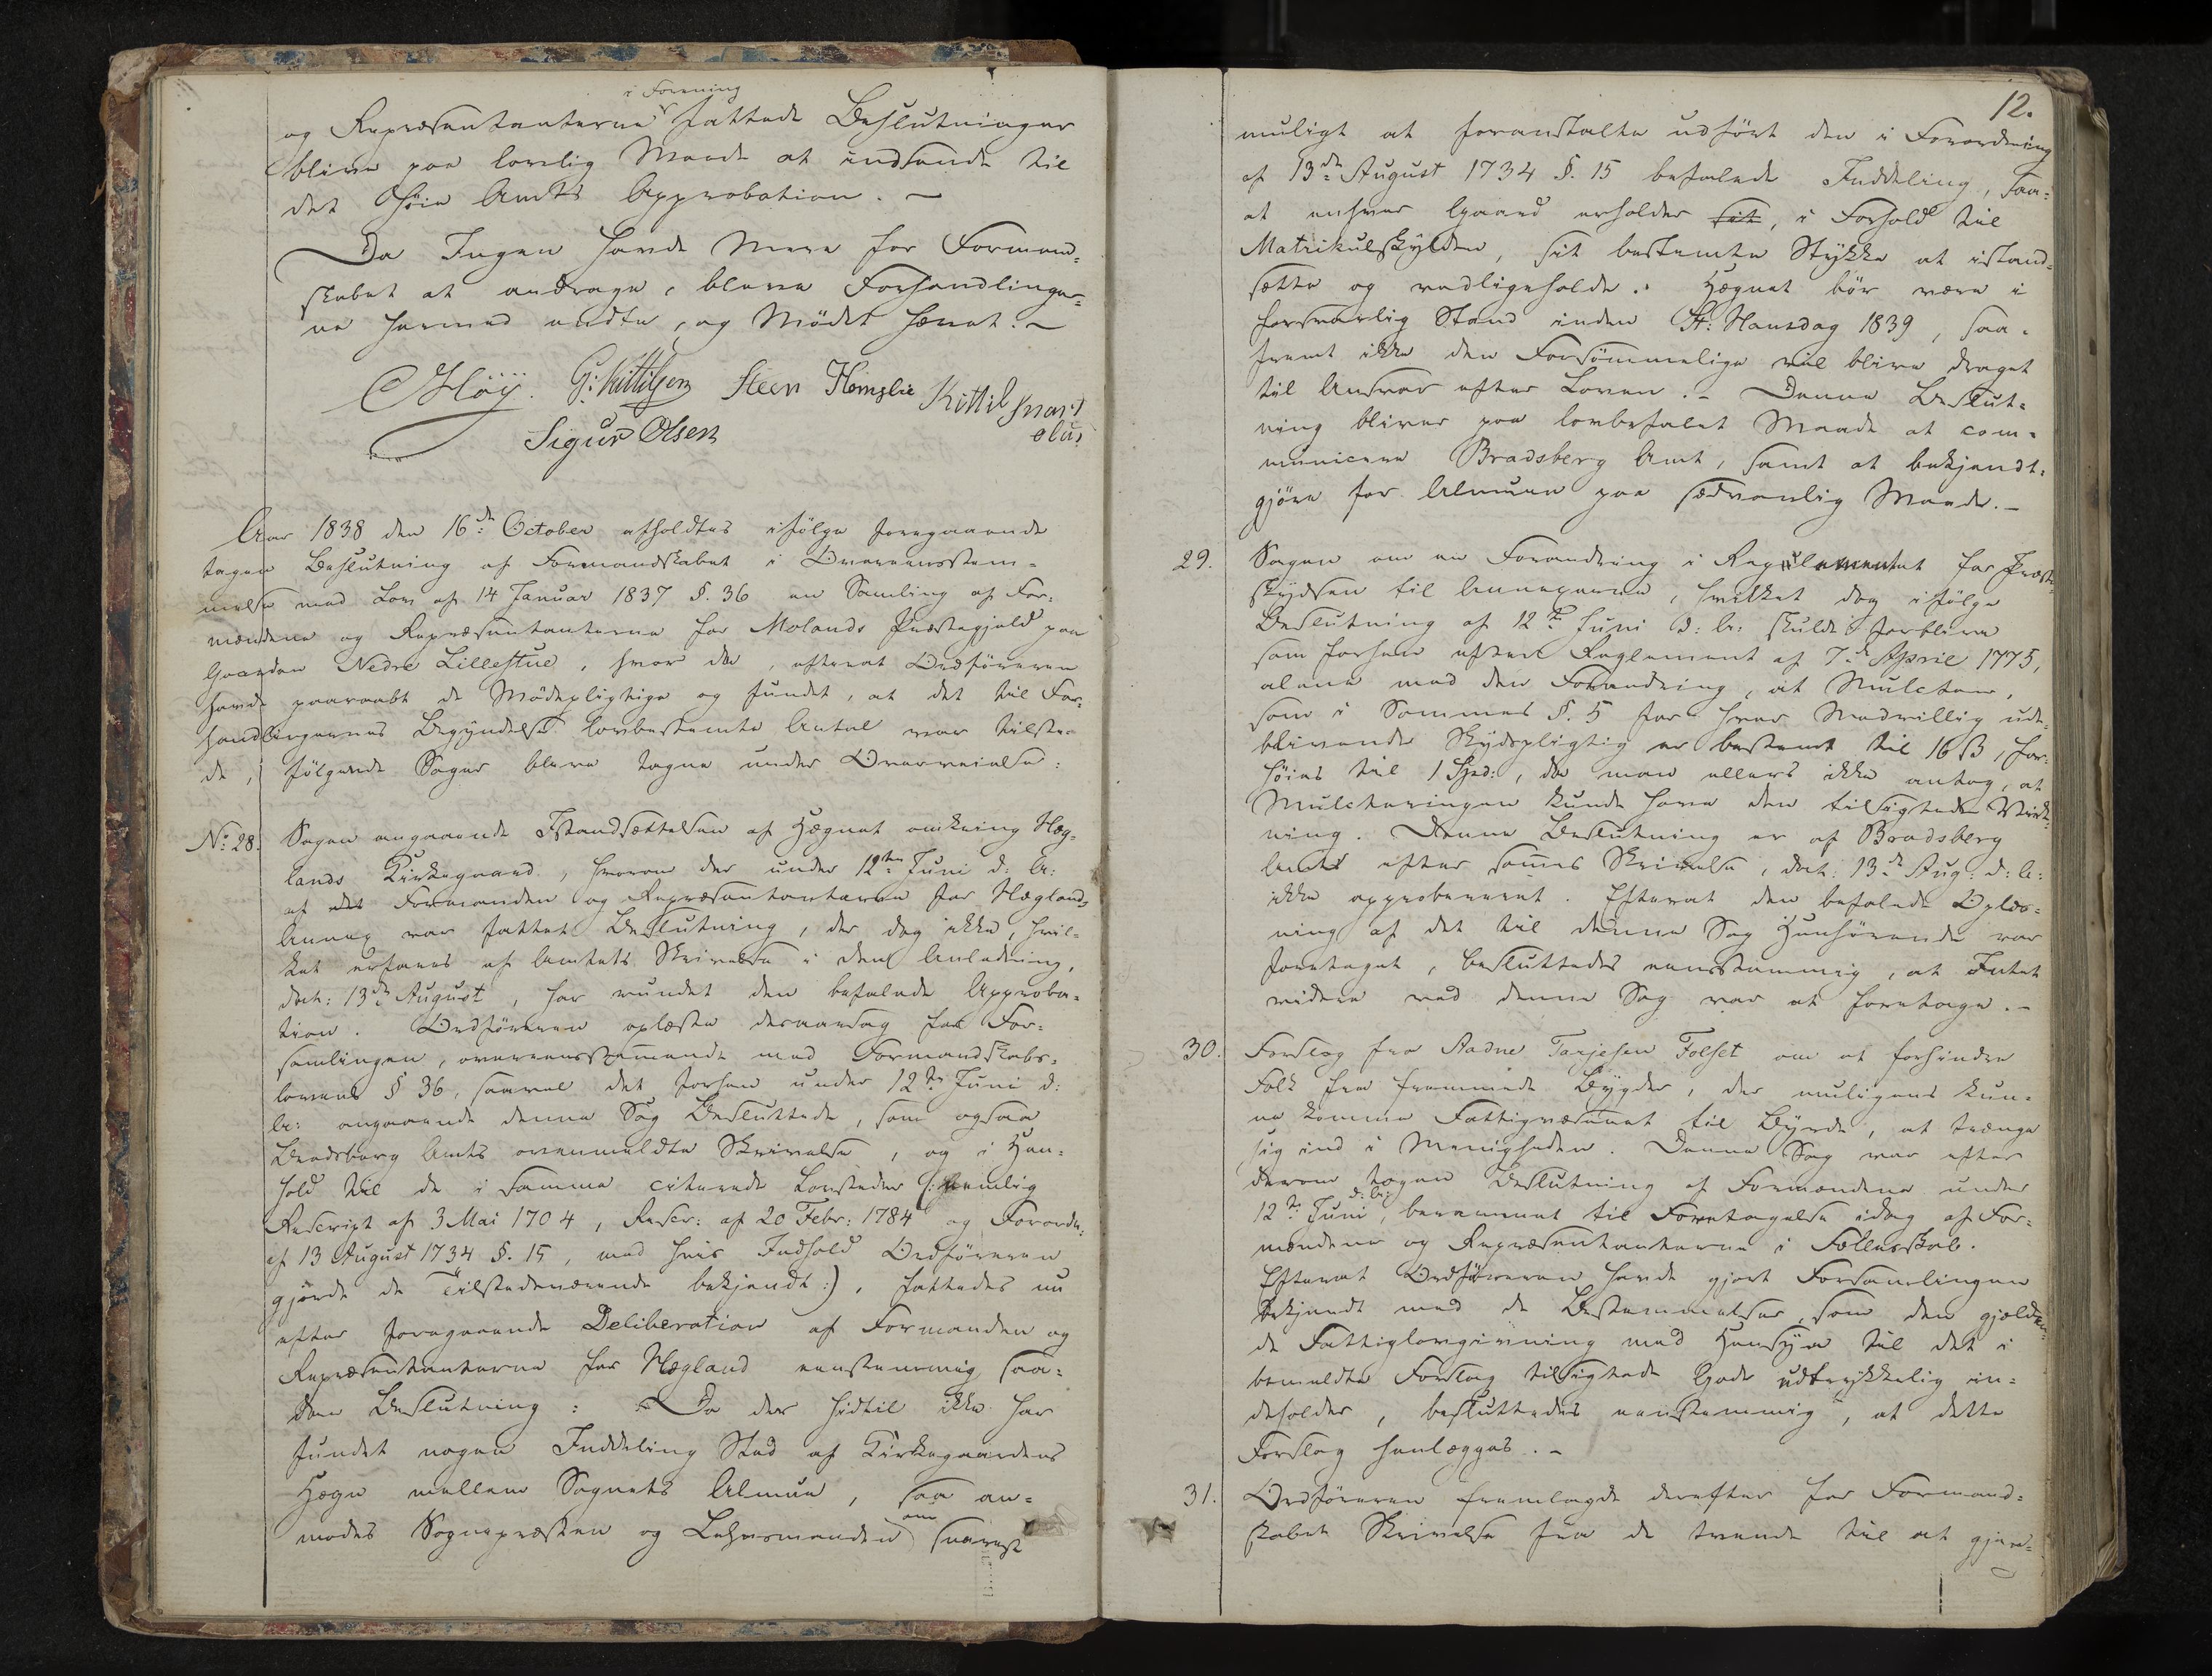 i Forening
og Repræsentanterne fattede Beslutninger
blive paa lovlig Maade at indsende til
det Høie Amts Approbation. —
Da Ingen havde Mere for Formand-
skabet at andrage, bleve Forhandlinger-
ne hermed endte, og Mödet hævet. —
C Höÿ. G: Kittilsen Steen Homslie Kittil
Sigur Olsen
Aar 1838 den 16de October afholdtes ifölge foregaaende
tagen Beslutning af Formandskabet i Overeensstem-
melse med Lov af 14 Januar 1837 §. 36 en Samling af For-
mændene og Repræsentanterne for Molands Præstegjeld paa
Gaarden Nedre Lillestue, hvor da, efterat Ordföreren
havde paaraabt de Mödepligtige og fundet, at det til For-
handlingernes Begÿndelse lovbestemte Antal var tilste-
de, fölgende Sager bleve tagne under Overveielse:
No 28. Sagen angaaende Istandsættelsen af Hegnet omkring Næg-
lands Kirkegaard, hvorom der under 12te Juni d: A:
af det Formanden og Repræsentanterne for Næglands
Annex var fattet Beslutning, der dog ikke, hvil-
ket erfares af Amtets Skrivelse i den Anledning,
dat: 13de August, har vundet den befalede Approba-
tion. Ordföreren oplæste desaarsag for For-
samlingen, overeensstemmende med Formandskabs-
lovens § 36, saavel det forhen under 12te Juni d:
A: angaaende denne Sag Besluttede, som ogsaa
Bradsberg Amts ovenmeldte Skrivelse, og i Hen-
hold til de i samme citerede Lovsteder (: nemlig
Rescript af 3 Mai 1704, Rescr: af 20 Febr: 1784 og Forordn:
af 13 August 1734 §. 15, med hvis Indhold Ordföreren
gjorde de Tilstedeværende bekjendt :), fattedes nu
efter foregaaende Deliberation af Formanden og
Repræsentanterne for Nægland eenstemmig saa-
dan Beslutning: Da der hidtil ikke har
fundet nogen Inddeling Sted af Kirkegaardens
Hegn mellem Sognets Almue, saa an-
modes Sognepræsten og Lehnsmanden om snarest
12.
muligt at foranstalte udfört den i Forordning
af 13de August 1734 §. 15 befalede Inddeling, saa-
at enhver Gaard erholder sit, i Forhold til
Matrikulskÿlden, sit bestemte Stÿkke at istand-
sætte og vedligeholde. Hegnet bör være i
forsvarlig Stand inden St: Hansdag 1839, saa-
fremt ikke den Forsömmelige vil blive draget
til Ansvar efter Loven. - Denne Beslut-
ning bliver paa lovbefalet Maade at com-
municere Bradsberg Amt, samt at bekjendt-
gjöre for Almuen paa sædvanlig Maade. -
29. Sagen om en Forandring i Reglementet for Præste-
skÿdsen til Annexerne, hvilket dog ifölge
Beslutning af 12te Juni d: A: skulde forblive
som forhen efter Reglement af 7de April 1775,
alene med den Forandring, at Mulcten,
som i Sammes §. 5 for hver Modvillig ude-
blivende Skÿdspligtig er bestemt til 16 ß, for-
höies til 1 Spd:, da man ellers ikke antog, at
Mulcteringen kunde have den tilsigtede Virk-
ning. Denne Beslutning er af Bradsberg
Amt efter sammes Skrivelse, dat: 13de Aug. d: A:
ikke approberet. Efterat den befalede Oplæs-
ning af det til denne Sag Henhörende var
foretaget, besluttedes eenstemmig, at Intet
videre ved denne Sag var at foretage. -
30. Forslag fra Aadne Tarjesen Folset om at forhindre
Folk fra fremmede Bÿgder, der muligens kun-
ne komme Fattigvæsenet til Bÿrde, at trænge
sig ind i Menigheden. Denne Sag var efter
derom tagen Beslutning af Formændene under
12te Juni d: A:, berammet til Foretagelse idag af For-
mændene og Repræsentanterne i Fællesskab.
Efterat Ordföreren havde gjort Forsamlingen
bekjendt med de Bestemmelser, som den gjælden-
de Fattiglovgivning med Hensÿn til det i
bemeldte Forslag tilsigtede Gode udtrÿkkelig in-
deholder, besluttedes eenstemmig, at dette
Forslag henlægges. -
31. Ordföreren fremlagde derefter for Formand-
skabet Skrivelse fra de trende til at gjen-